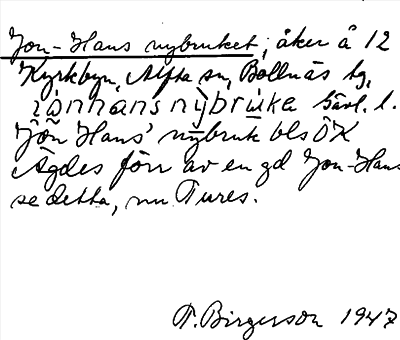 Jon-Hans nybruket, åker å 12
Kyrkbyn, Alfta sn, Bollnäs tg,
Gävl. l.
Jon Hans' nybruk bls ÖK
Ägdes förr av en gd Jon-Hans
se detta, nu Tures.
T. Birgerson 1947